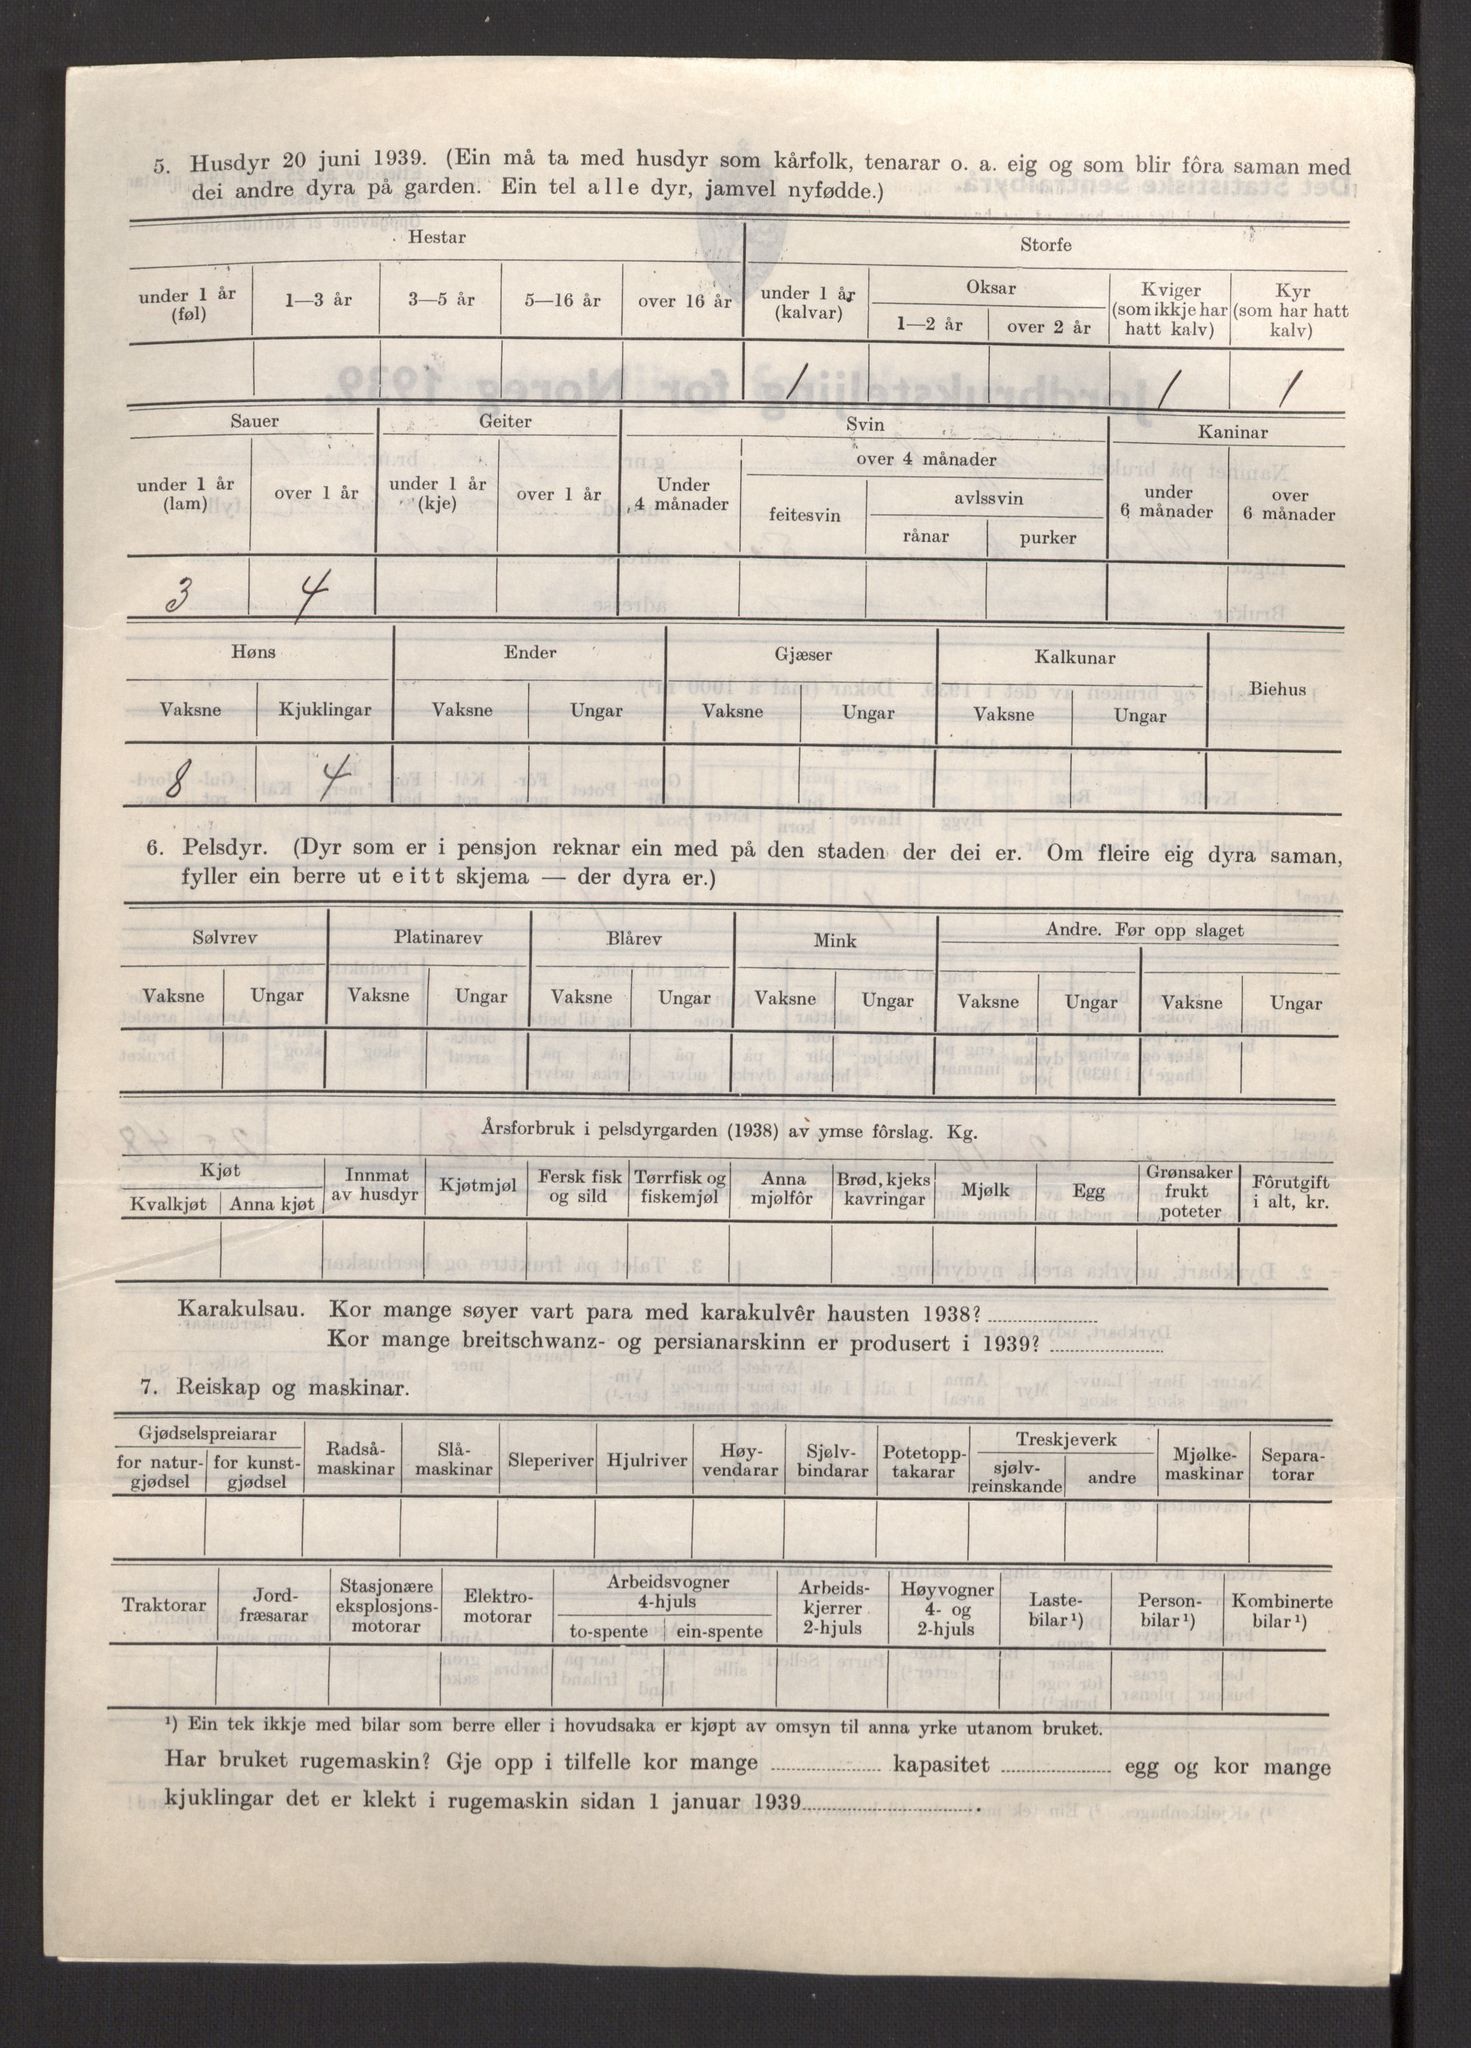 5. Husdyr 20 juni 1939. (Ein må ta med husdyr som kårfolk, tenarar o. a. eig og som blir fôra saman med
dei andre dyra på garden. Ein tel alle dyr, jamvel nyfødde.)
Hestar Storfe
under 1 år (føl) 1—3 år 3—5 år 5—16 år over 16 år under 1 år (kalvar) Oksar 1—2 år over 2 år Kviger (som ikkje har hatt kalv) Kyr (som har hatt kalv)
1 1 1
Sauer Geiter Svin Kaninar
over 4 månader
under 1 år (lam) over 1 år under 1 år (kje) over 1 år Under 4 månader feitesvin avlssvin rånar purker under 6 månader over 6 månader
3 4
Høns Ender Gjæser Kalkunar Biehus
Vaksne Kjuklingar Vaksne Ungar Vaksne Ungar Vaksne Ungar
8 4
6. Pelsdyr. (Dyr som er i pensjon reknar ein med på den staden der dei er. Om fleire eig dyra saman,
fyller ein berre ut eitt skjema — der dyra er.)
Sølvrev Platinarev Blårev Mink Andre. Før opp slaget
Vaksne Ungar Vaksne Ungar Vaksne Ungar Vaksne Ungar Vaksne Ungar Vaksne Ungar
Årsforbruk i pelsdyrgarden (1938) av ymse fôrslag. Kg.
Kjøt Kvalkjøt Anna kjøt Innmat av husdyr Kjøtmjøl Fersk fisk og sild Tørrfisk og fiskemjøl Anna mjølfôr Brød, kjeks kavringar Mjølk Egg Grønsaker frukt poteter Fôrutgift i alt, kr.
Karakulsau. Kor mange søyer vart para med karakulvêr hausten 1938?
Kor mange breitschwanz- og persianarskinn er produsert i 1939?
7. Reiskap og maskinar.
Gjødselspreiarar for natur-gjødsel for kunst-gjødsel Radså-maskinar Slå-maskinar Sleperiver Hjulriver Høy-vendarar Sjølv-bindarar Potetopp-takarar Treskjeverk sjølv-reinskande andre Mjølke-maskinar Separa-torar
Traktorar Jord-fræsarar Stasjonære eksplosjons-motorar Elektro-motorar Arbeidsvogner 4-hjuls to-spente ein-spente Arbeids-kjerrer 2-hjuls Høyvogner 4- og 2-hjuls Laste-bilar ¹) Person-bilar ¹) Kombinerte bilar ¹)
¹) Ein tek ikkje med bilar som berre eller i hovudsaka er kjøpt av omsyn til anna yrke utanom bruket.
Har bruket rugemaskin? Gje opp i tilfelle kor mange kapasitet egg og kor mange
kjuklingar det er klekt i rugemaskin sidan 1 januar 1939